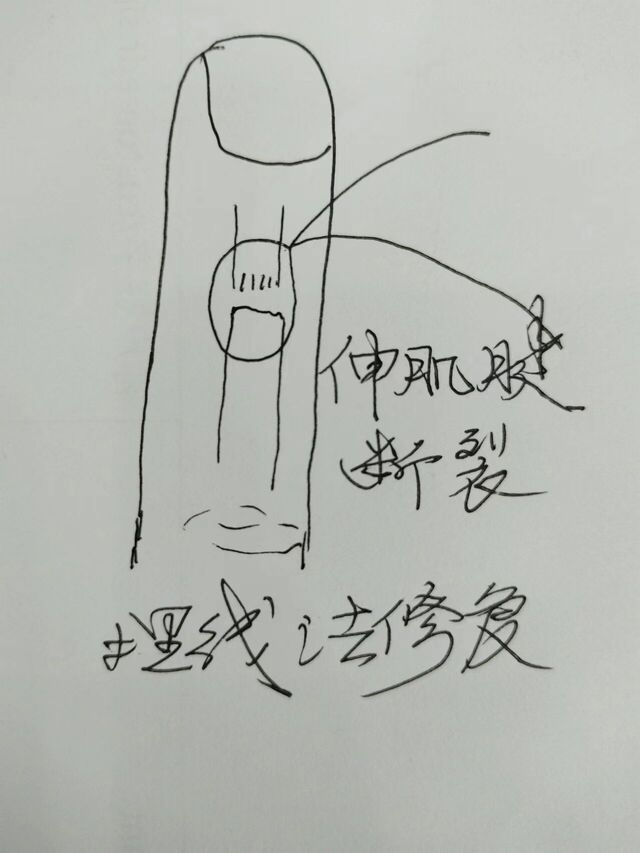 伸肌腱
断裂
埋线法修复